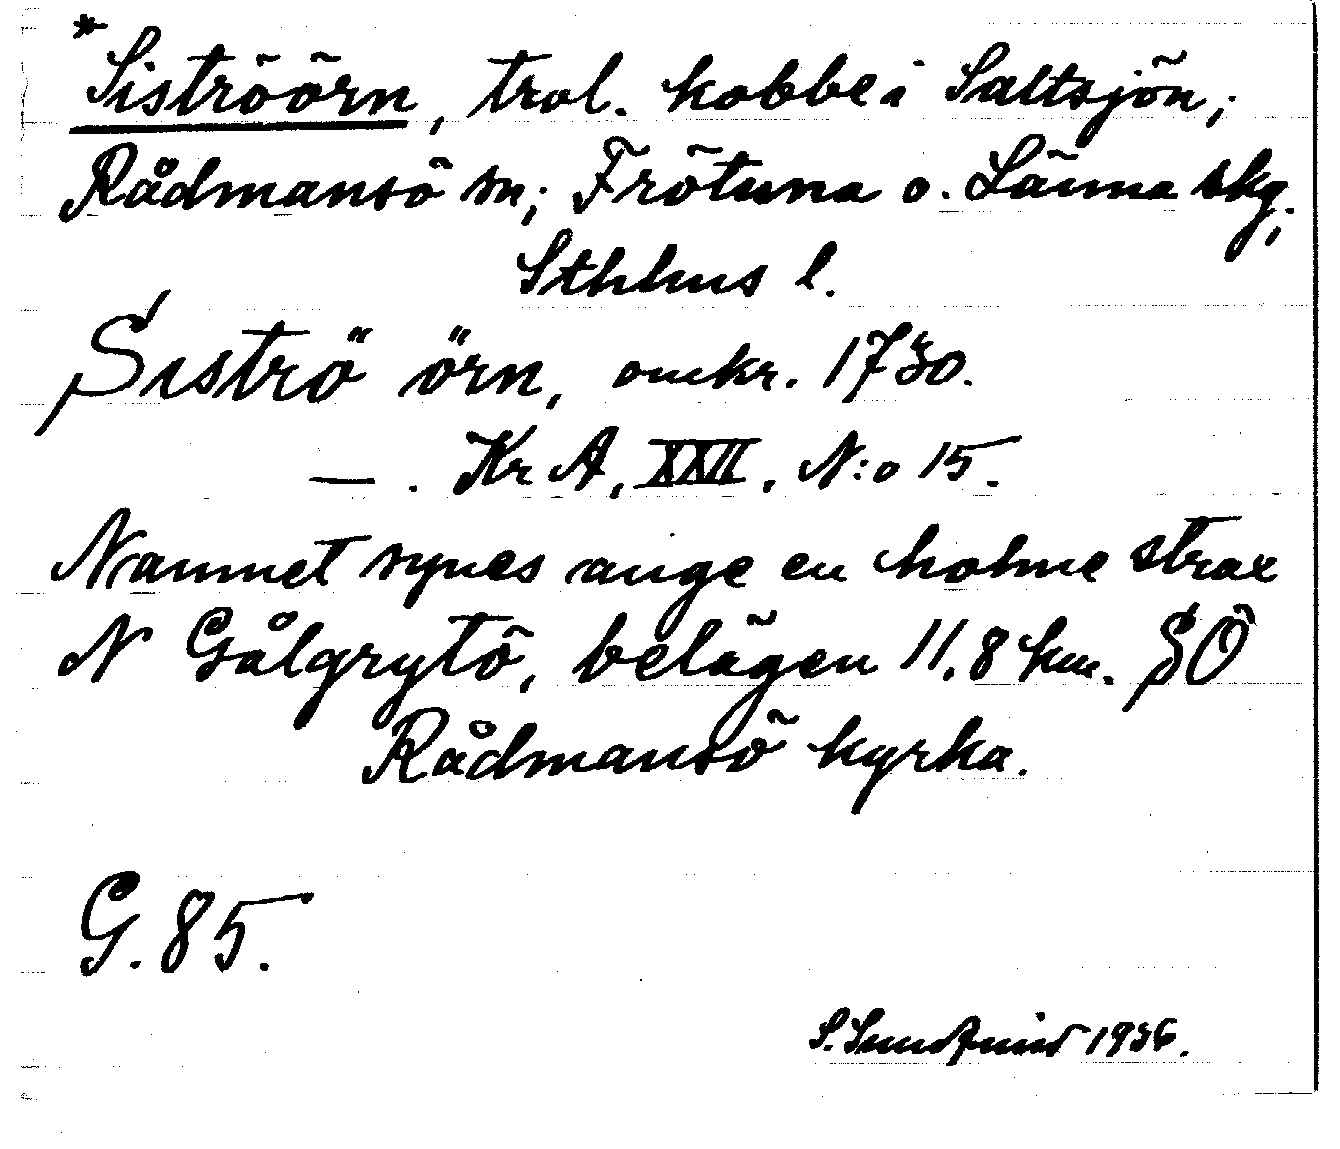 *Siströörn, trol. kobbe i Saltsjön;
Rådmansö sn; Frötuna o. Länna skg;
Sthlms l.
Siströ örn, omkr. 1730.
— . Kr A, XXII, N:o 15.
Namnet synes ange en holme strax
N Gålgrytö, belägen 11,8 km. SÖ
Rådmansö kyrka.
G. 85.
S. 1936.